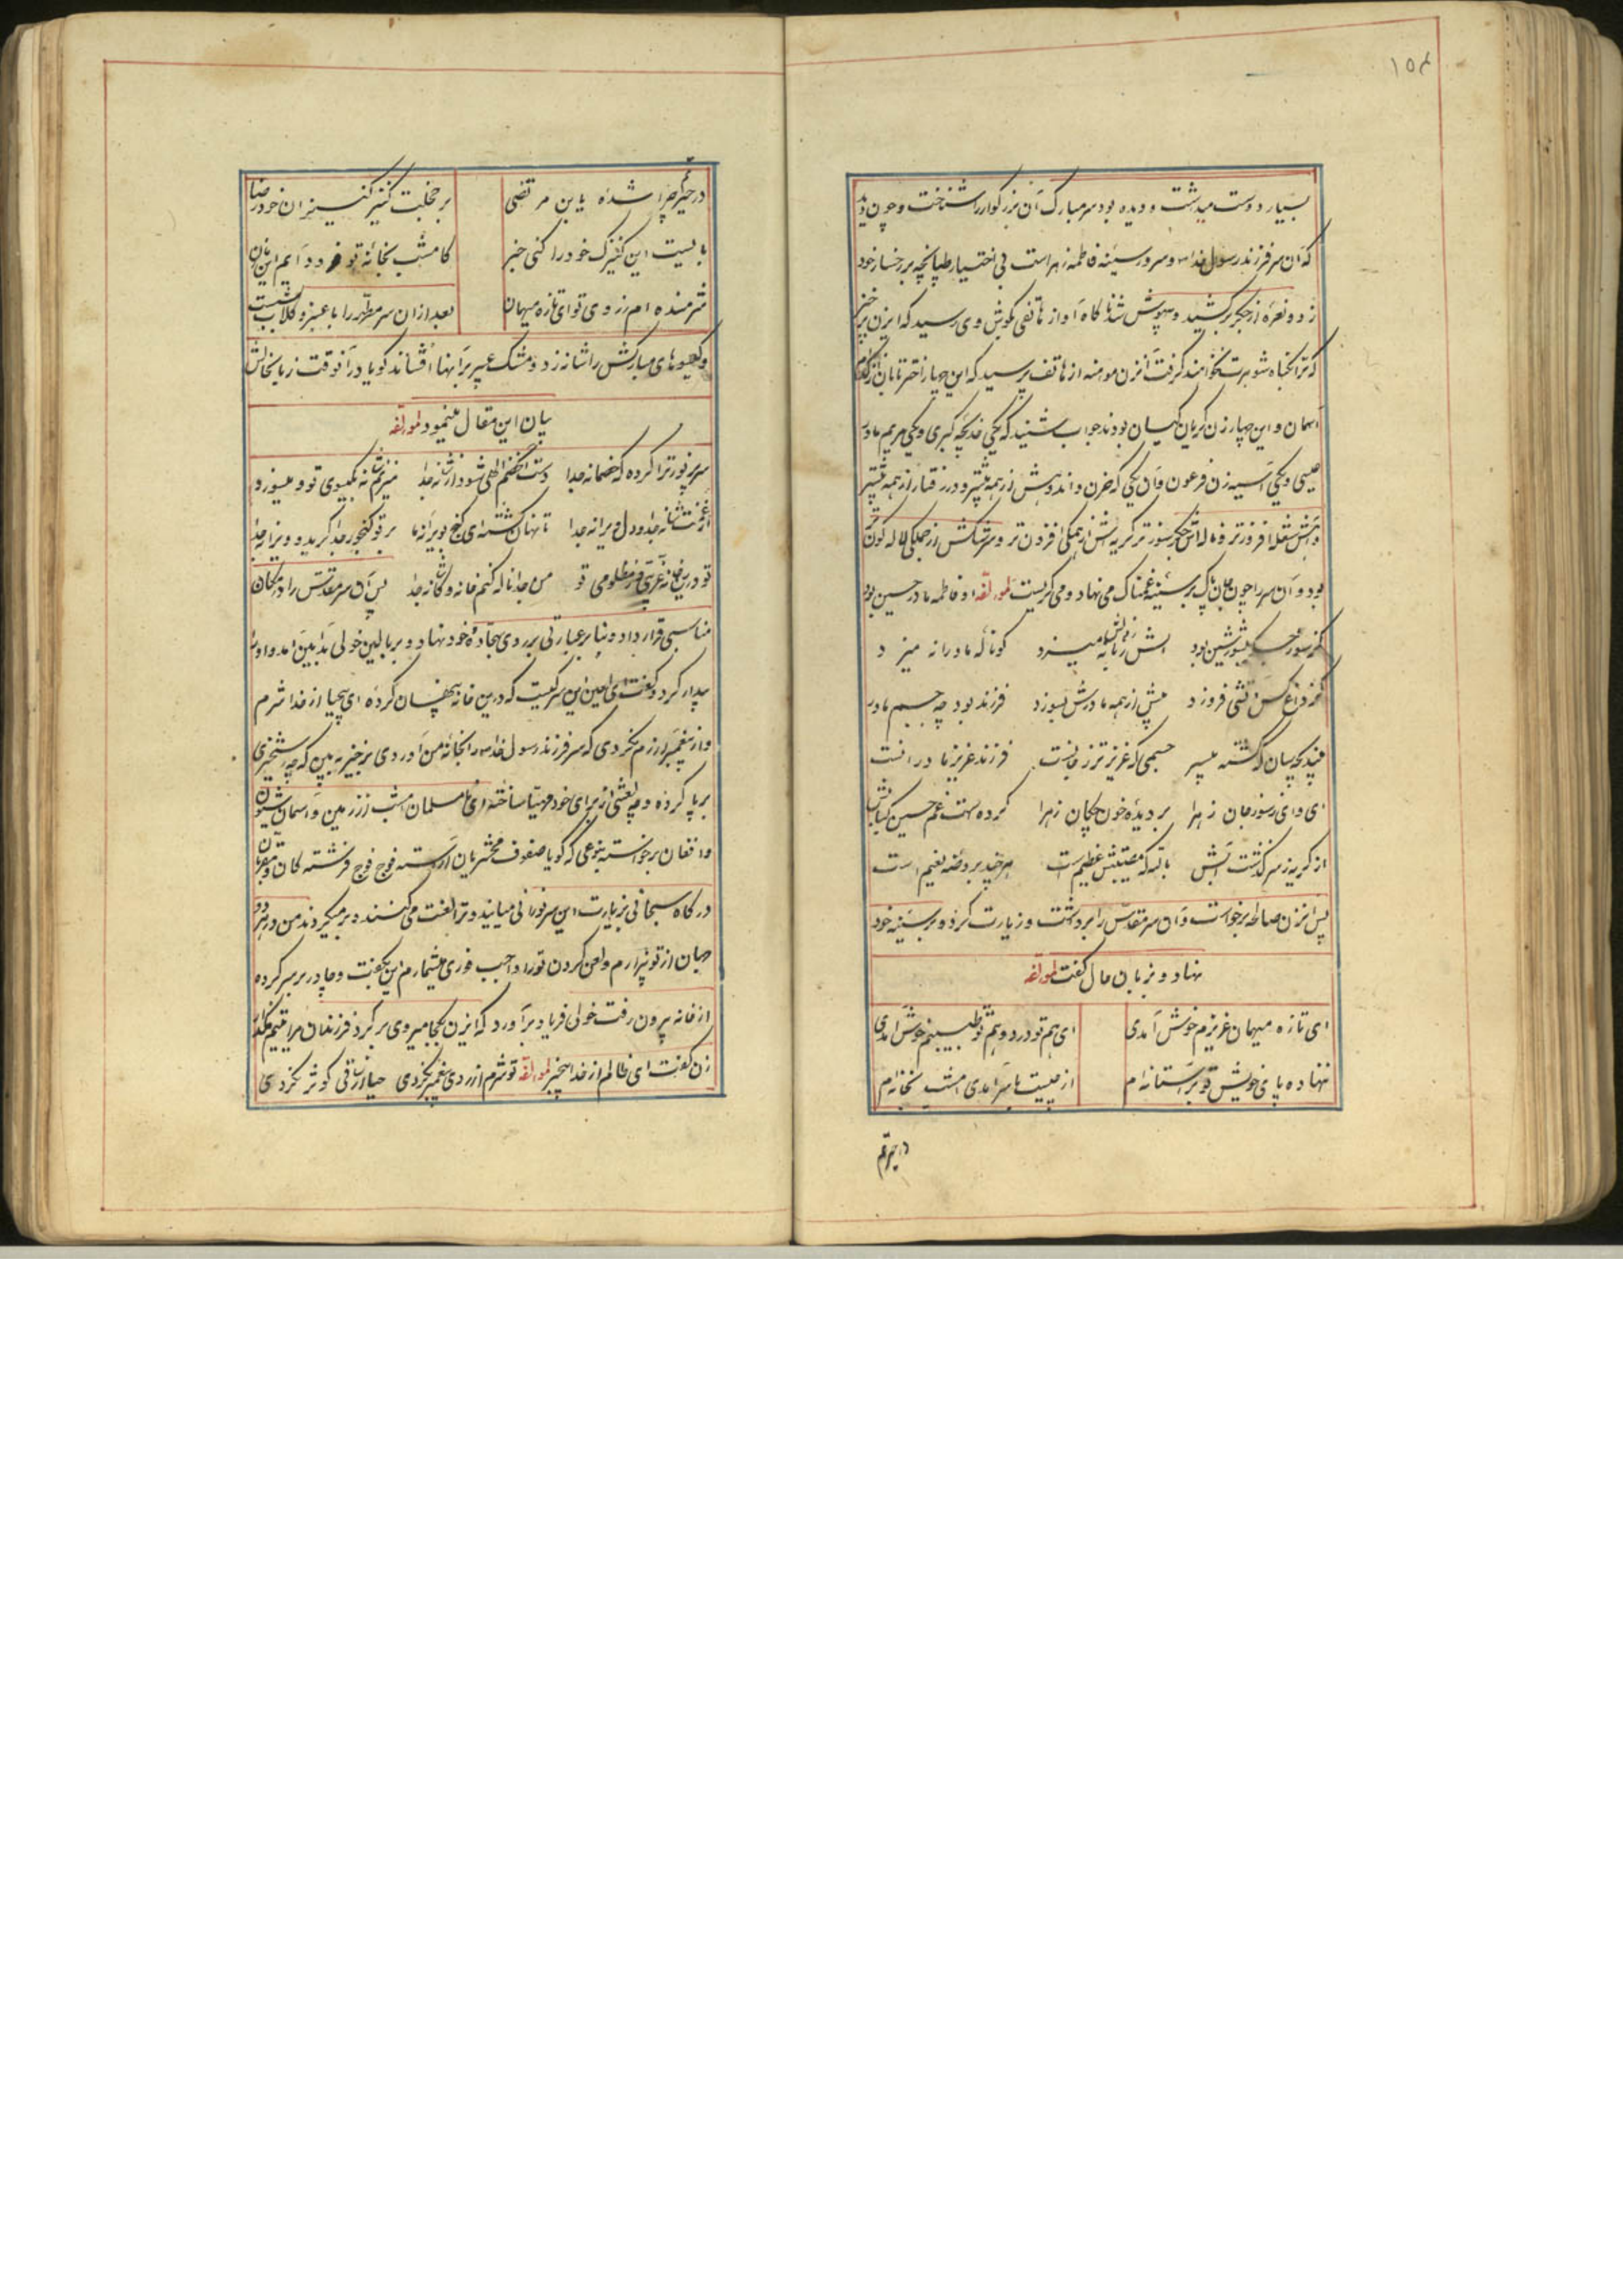 ۱۵۴
بسیار دوست میداشت و دیده بود سر مبارک آن بزرکوار را شناخت و چون دید
که آن سر فرزند رسول خدا و سرور سینه فاطمه زهراست بی اختیار طپانچه بر رخسار خود
زد و نعره از جگر برکشید و بیهوش شد ناکاه آواز هاتفی بکوش وی رسید که ایزن برخیز
که ترا بکناه شوهرت نخواهند کرفت آنزن مومنه از هاتف پرسید که این چهار اختر تابان از کدام
آسمان و این چهار زن کریان کیسان بودند جواب شنید که یکی خدیجه کبری و یکی مریم مادر
عیسی و یکی آسیه زن فرعون و آن یکی که حزن و اندوهش از همه بیشتر و در رفتار از همه پیشتر
و آهش شعله افروزتر و ناله اش جگرسوزتر کریه اش از همکی افزون تر و سرشکش از جملکی لاله کون
بود و آن سر را چون جان پاک بر سینه غمناک می نهاد و می کریست لمولفه او فاطمه مادر حسین بود
کز سوز حسین بشور و شین بود آتش بزمانه میزد کو ناله مادرانه میزد
کز داغ کسی تنی فروزد بیش از همه مادرش بسوزد فرزند بود چه جسم مادر
بیند بچه سان کشته بیسر جسمی که عزیزتر ز جانست فرزند عزیز مادر آنست
ای وای ز سوز جان زهرا بر دیده خون چکان زهرا کرده است غم حسین کبابش
از کریه ز سر کذشت آبش بالله که مصیبتش عظیم است هر چند بروضه نعیم است
پس آنزن صالحه برخواست و آن سر مقدس را برداشت و زیارت کرد و بر سینه خود
نهاد و بزبان حال کفت لمولفه
ای تازه میهمان عزیزم خوش آمدی ای هم تو درد و هم تو طبیبم خوش آمدی
ننهاده پای خویش تو بر آستانه ام از چیست با سر آمدی امشب بخانه ام
در حیرتم
در حیرتم چرا شده یا بن مرتضی برجلبت کنیز کنیزان خود رضا
بایست این کنیزک خود را کنی خبر کامشب بخانه تو فرود آیم این زمان
شرمنده ام ز روی تو ای تازه میهمان بعد از آن سر مطهر را با عبیر و کلاب شست
و کیسوهای مبارکش را شانه زد و مشک عبیر بر آنها افشاند کویا در آنوقت زبان حالش
بیان این مقال مینمود لمولفه
سر پرنور ترا کرده که خصمانه جدا دست از حکم الهی شود از شانه جدا میزنم شانه بکیسوی تو و میسوزد
از غمت شانه جدا و دل دیوانه جدا تا نهان کشته ای کنج بویرانه ما بر تو کنجور جدا کرید و ویرانه جدا
تو درین خانه غریبی و ز مظلومی تو من جدا ناله کنم خانه و کاشانه جدا پس آن سر مقدس را در مکان
مناسبی قرار داد و بنا بر عبارتی بر روی سجاده خود نهاد و بر بالین خولی بدآیین آمد و او را
بیدار کرد و کفت ای لعین این سر کیست که درین خانه پنهان کرده ای بیحیا از خدا شرم
و از پیغمبر آزرم نکردی که سر فرزند رسول خدا را بخانه من آوردی برخیز به بین که چه رستخیزی
برپا کرده و چه لعنتی از برای خود مهیا ساخته ای نامسلمان امشب از زمین و آسمان شیون
و افغان برخواسته بنوعی که کویا صفوف محشریان آراسته فوج فوج فرشتکان و مقربان
درکاه سبحانی بزیارت این سر نورانی میآیند و ترا لعنت می کنند و بر میکردند من در هر دو
جهان از تو بیزارم و لعن کردن تو را واجب فوری میشمارم این بکفت و چادر بر سر کرده
از خانه بیرون رفت خولی فریاد برآورد که ایزن بکجا میروی برکرد فرزندان مرا یتیم مکذار
زن کفت ای ظالم از خدا بیخبر لمولفه تو شرم از روی پیغمبر نکردی حیا از ساقی کوثر نکردی